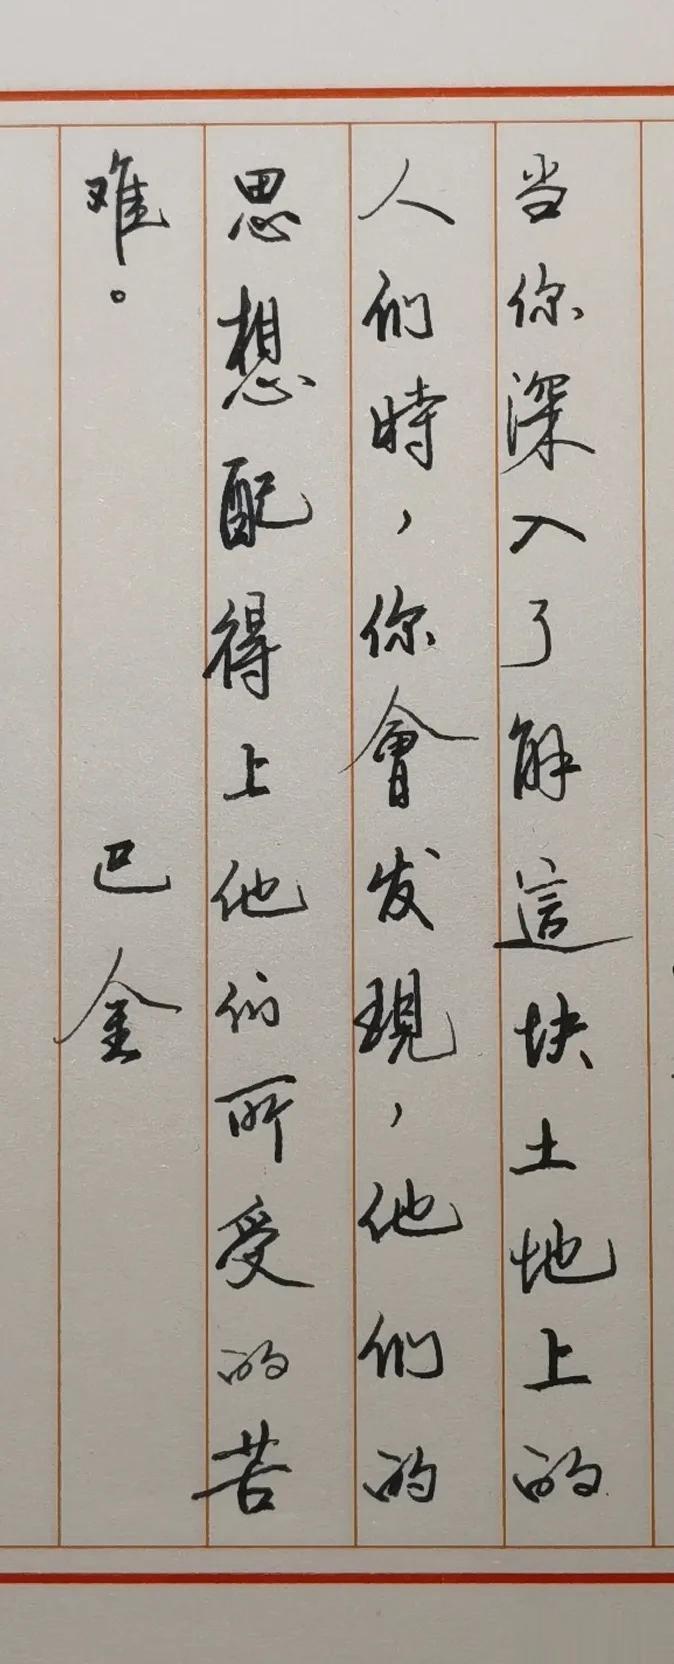 当你深入了解這块土地上的
人们時，你會发現，他们的
思想配得上他们所受的苦
难。
巴金